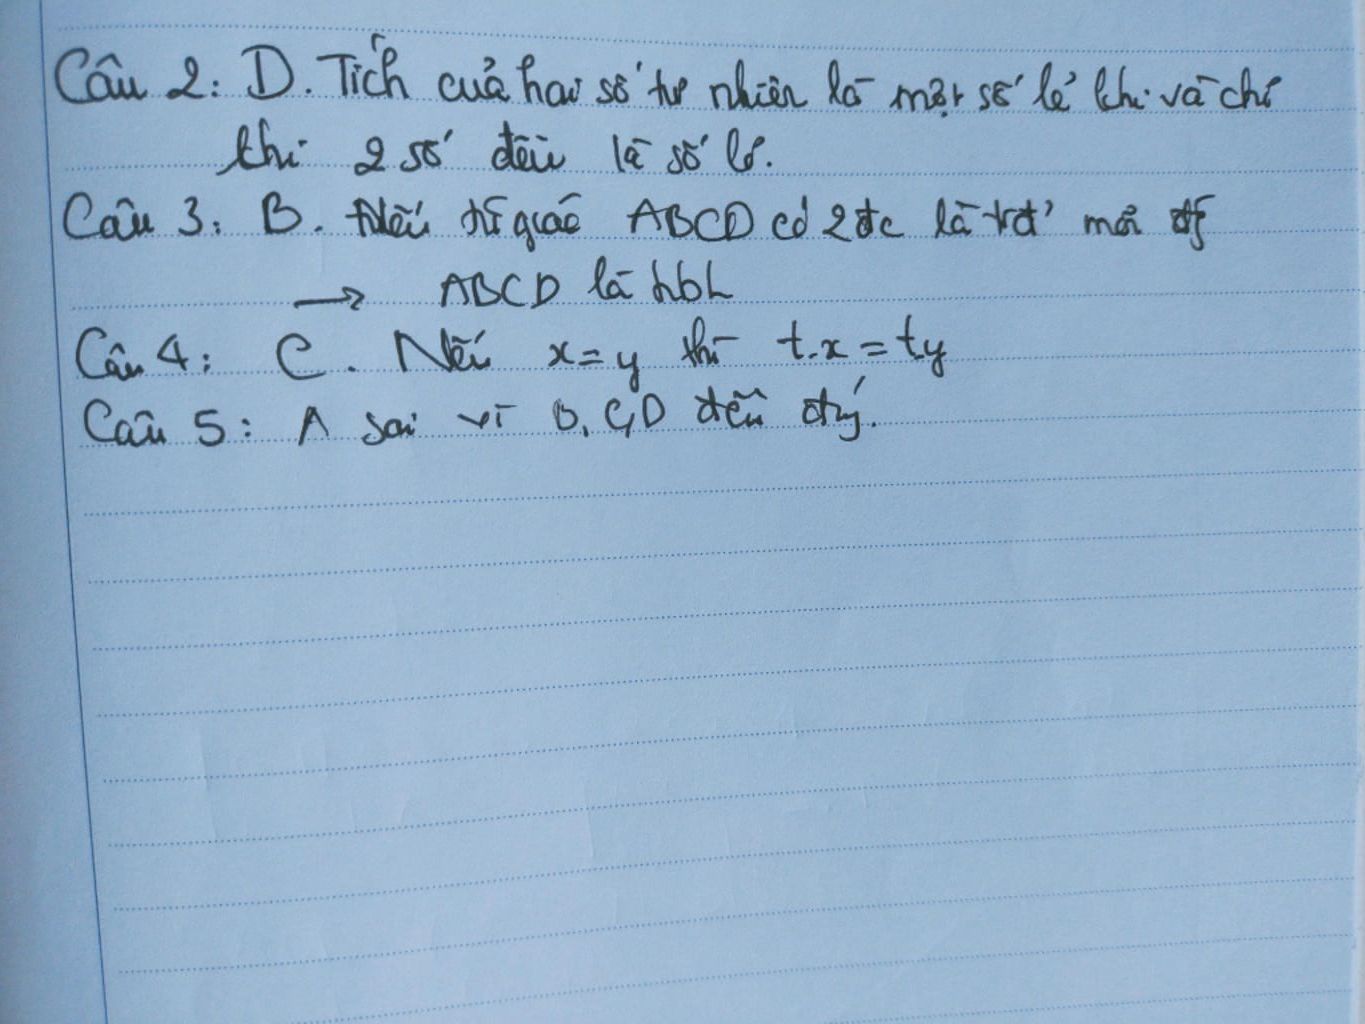 Câu 2: D. Tích của hai số tự nhiên là một số lẻ khi và chỉ
khi 2 số đều là số lẻ.
Câu 3: B. Nếu tứ giác ABCD có 2 đc là trđ' mỗi đg
→ ABCD là hbh
Câu 4: C. Nếu x=y thì t.x = ty
Câu 5: A sai vì B, C, D đều đúng.